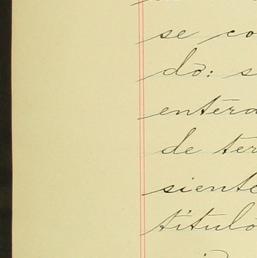 se co
dō: s
entéra
de ter
siente
título